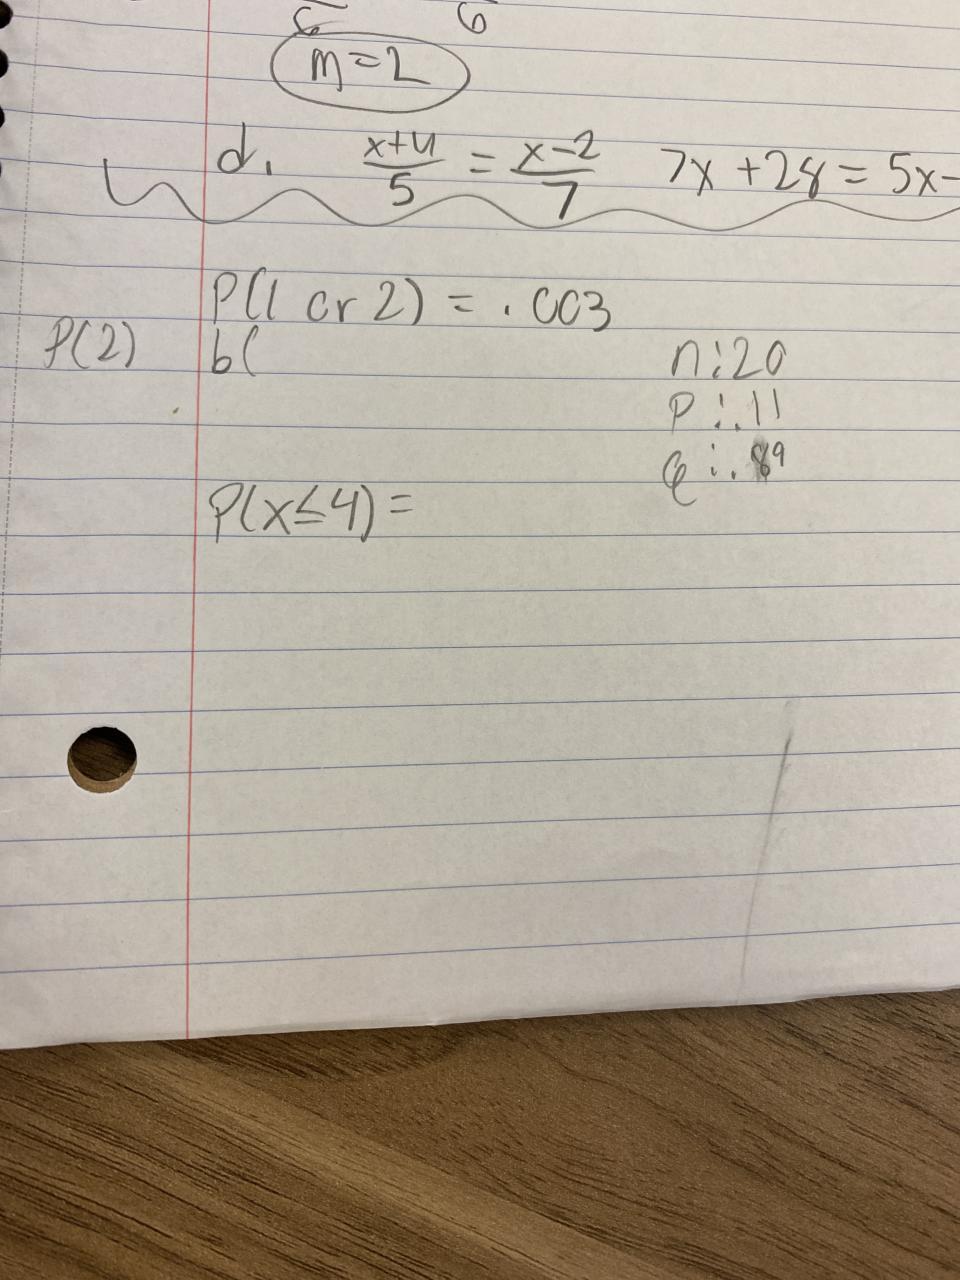 6 6
m=2
d. x+4/5 = x-2/7 7x+28=5x-
P(1 or 2) = .003
P(2) b( n:20
P:.11
Q:.89
P(x≤4)=